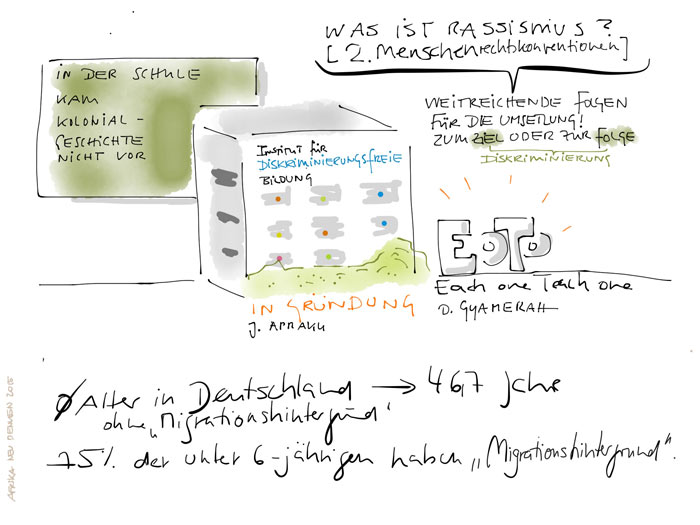 WAS IST RASSISMUS?
[2. Menschenrechtskonventionen]
IN DER SCHULE
KAM
KOLONIAL-
GESCHICHTE
NICHT VOR
WEITREICHENDE FOLGEN
FÜR DIE UMSETZUNG!
ZUM ZIEL ODER ZUR FOLGE
DISKRIMINIERUNG
INSTITUT FÜR
DISKRIMINIERUNGSFREIE
BILDUNG
IN GRÜNDUNG
J. APRAKU
EOTO
Each one Teach one
D. GYAMERAH
Ø Alter in Deutschland → 46,7 Jahre
ohne „Migrationshintergrund"
75% der unter 6-jährigen haben „Migrationshintergrund".
AFRIKA NEU DENKEN 2015